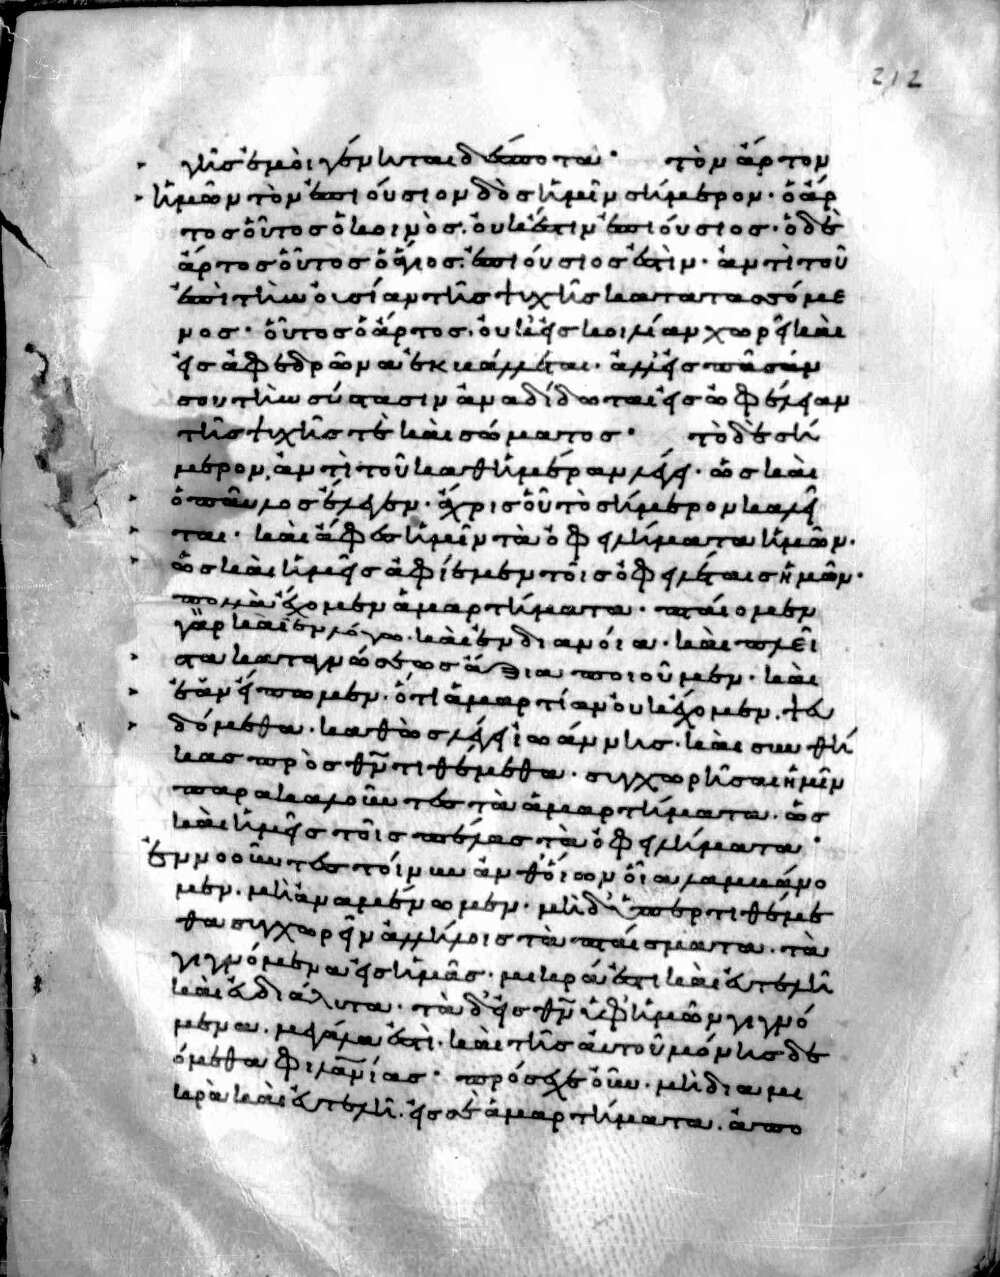 212
γῆς ἐμοὶ γένηται δέσποτα· τὸν ἄρτον
ἡμῶν τὸν ἐπιούσιον δὸς ἡμῖν σήμερον· ὁ ἄρ
τος οὗτος ὁ κοινὸς. οὐκ ἔστιν ἐπιούσιος· ὁ δὲ
ἄρτος οὗτος ὁ ἅγιος. ἐπιούσιος ἐστὶν· ἀντὶ τοῦ
ἐπὶ τὴν οὐσίαν τῆς ψυχῆς κατατασσόμε
νος· οὗτος ὁ ἄρτος. οὐκ εἰς κοιλίαν χωρεῖ καὶ
εἰς ἀφεδρῶνα ἐκβάλλεται· ἀλλ' εἰς πᾶσάν
σου τὴν σύστασιν ἀναδίδοται εἰς ὠφέλειαν
τῆς ψυχῆς τε καὶ σώματος· τὸ δὲ σή
μερον, ἀντὶ τοῦ καθημέραν λέγει· ὡς καὶ
ὁ παῦλος ἔλεγεν· ἄχρις οὗ τὸ σήμερον καλεῖ
ται· καὶ ἄφες ἡμῖν τὰ ὀφειλήματα ἡμῶν·
ὡς καὶ ἡμεῖς ἀφίεμεν τοῖς ὀφειλέταις ἡμῶν·
πολλὰ ἔχομεν ἁμαρτήματα· πταίομεν
γὰρ καὶ ἐν λόγω· καὶ ἐν διανοία· καὶ πλεῖ
στα καταγνώσεως ἄξια ποιοῦμεν· καὶ
ἐὰν εἴπωμεν· ὅτι ἁμαρτίαν οὐκ ἔχομεν. ψευ
δόμεθα· καθὼς λέγει ἰωάννης· καὶ συνθή
κας πρὸς θν τιθέμεθα· συγχωρῆσαι ἡμῖν
παρακαλοῦντες τὰ ἁμαρτήματα. ὡς
καὶ ἡμεῖς τοῖς πέλας τὰ ὀφειλήματα·
ἐννοοῦντες τοίνυν ἀνθ' οἵων οἷα λαμβάνο
μεν. μὴ ἀναμένωμεν· μὴ δὲ ὑπερτιθέμε
θα συγχωρεῖν ἀλλήλοις τὰ πταίσματα. τὰ
γιγνόμενα εἰς ἡμᾶς· μικρά ἐστι καὶ εὐτελῆ
καὶ εὐδιάλυτα· τὰ δ' εἰς θν ὑφ' ἡμῶν γιγνό
μενα. μεγάλα ἐστὶ· καὶ τῆς αὐτοῦ μόνης δε
όμεθα φιλανίας· πρόσεχε οὖν. μὴ δια μι
κρὰ καὶ εὐτελῆ. εἰς σὲ ἁμαρτήματα. ἀπο